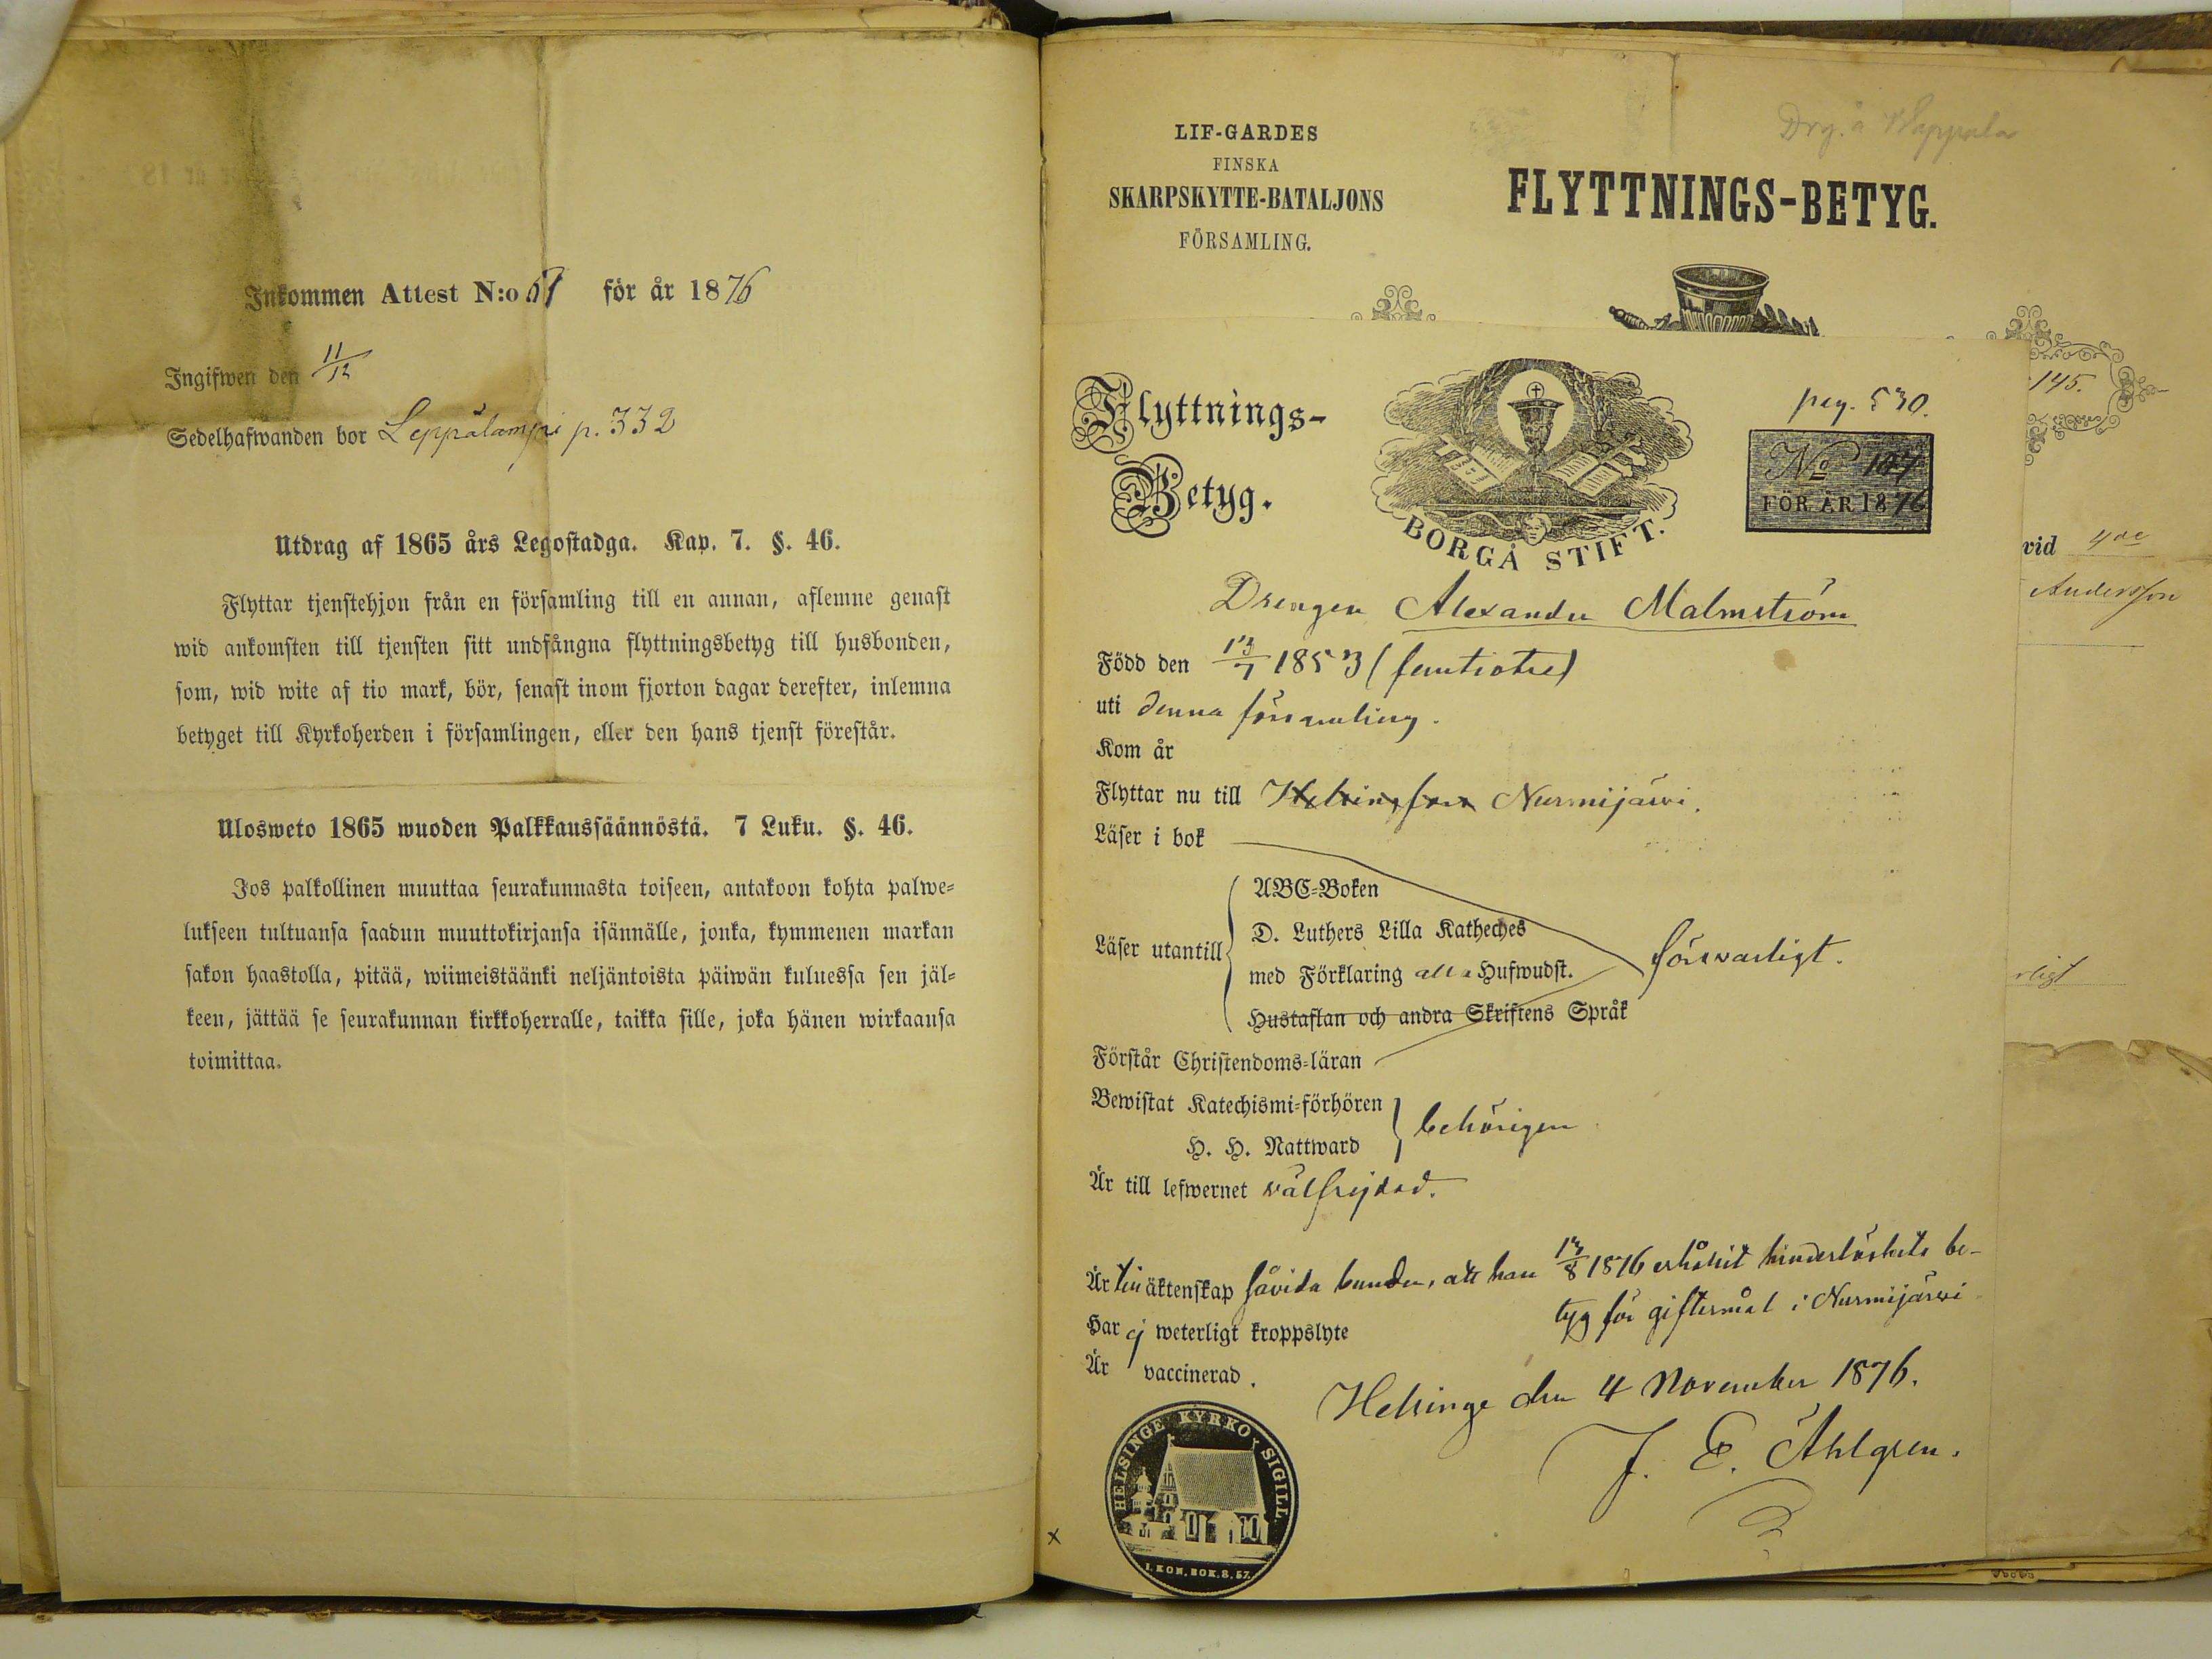 Inkommen Attest N:o 61 för år 1876
Ingifwen den 11/12
Sedelhafwanden bor Leppälampi p. 332
Utdrag af 1865 års Legostadga. Kap. 7. §. 46.
Flyttar tjenstehjon från en församling till en annan, aflemne genast
wid ankomsten till tjensten sitt undfångna flyttningsbetyg till husbonden,
som, wid wite af tio mark, bör, senast inom fjorton dagar derefter, inlemna
betyget till Kyrkoherden i församlingen, eller den hans tjenst förestår.
Ulosweto 1865 wuoden Palkkaussäännöstä. 7 Luku. §. 46.
Jos palkollinen muuttaa seurakunnasta toiseen, antakoon kohta palwe-
lukseen tultuansa saadun muuttokirjansa isännälle, jonka, kymmenen markan
sakon haastolla, pitää, wiimeistäänki neljäntoista päiwän kuluessa sen jäl-
keen, jättää se seurakunnan kirkkoherralle, taikka sille, joka hänen wirkaansa
toimittaa.
Drg. å
LIF-GARDES
FINSKA
SKARPSKYTTE-BATALJONS
FÖRSAMLING.
FLYTTNINGS-BETYG.
145.
vid 4de
Andersson
rligt
Flyttnings-
Betyg.
BORGÅ STIFT.
pag. 530.
No 187
FÖR ÅR 1876
Drengen Alexander Malmström
Född den 13/7 1853 (femtiotre)
uti denna församling.
Kom år
Flyttar nu till Helsingfors Nurmijärwi.
Läser i bok
Läser utantill
ABC-Boken
D. Luthers Lilla Katheches
med Förklaring alla Hufwudst.
Hustaflan och andra Skriftens Språk
försvarligt.
Förstår Christendoms-läran
Bewistat Katechismi-förhören
H. H. Nattward
behörigen
Är till lefwernet välfrejdad.
Är till äktenskap såvida bunden, att han 13/8 1876 erhållit hinderlöshets be-
tyg för giftermål i Nurmijärwi
Har ej weterligt kroppslyte
Är vaccinerad.
Helsinge den 4 November 1876.
J. E. Åhlgren.
HELSINGE KYRKO SIGILL.
1. KON. BOK. 8. 57.
x